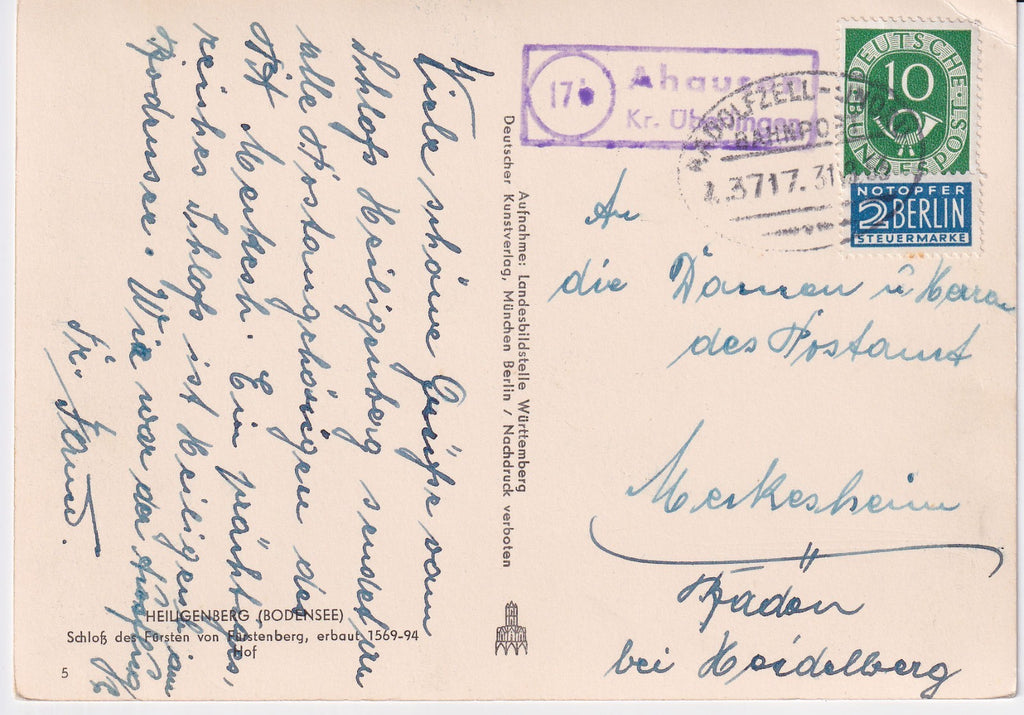 Viele schöne Grüße vom
Schloß Heiligenberg sendet Ihnen
alle Postangehörigen des
PA Meckesh. Ein prächtiges,
reiches Schloß ist Heiligenb. am
Bodensee. Wie war der Ausflug
Fr.
HEILIGENBERG (BODENSEE)
Schloß des Fürsten von Fürstenberg, erbaut 1569-94
Hof
5
Aufnahme: Landesbildstelle Württemberg
Deutscher Kunstverlag, München Berlin / Nachdruck verboten
17b
Ahausen
Kr. Überlingen
RADOLFZELL-LINDAU
BAHNPOST
Z.3717. 31
DEUTSCHE BUNDESPOST
10
NOTOPFER
2 BERLIN
STEUERMARKE
An
die Damen u Herren
des Postamt
Meckesheim
Baden
bei Heidelberg